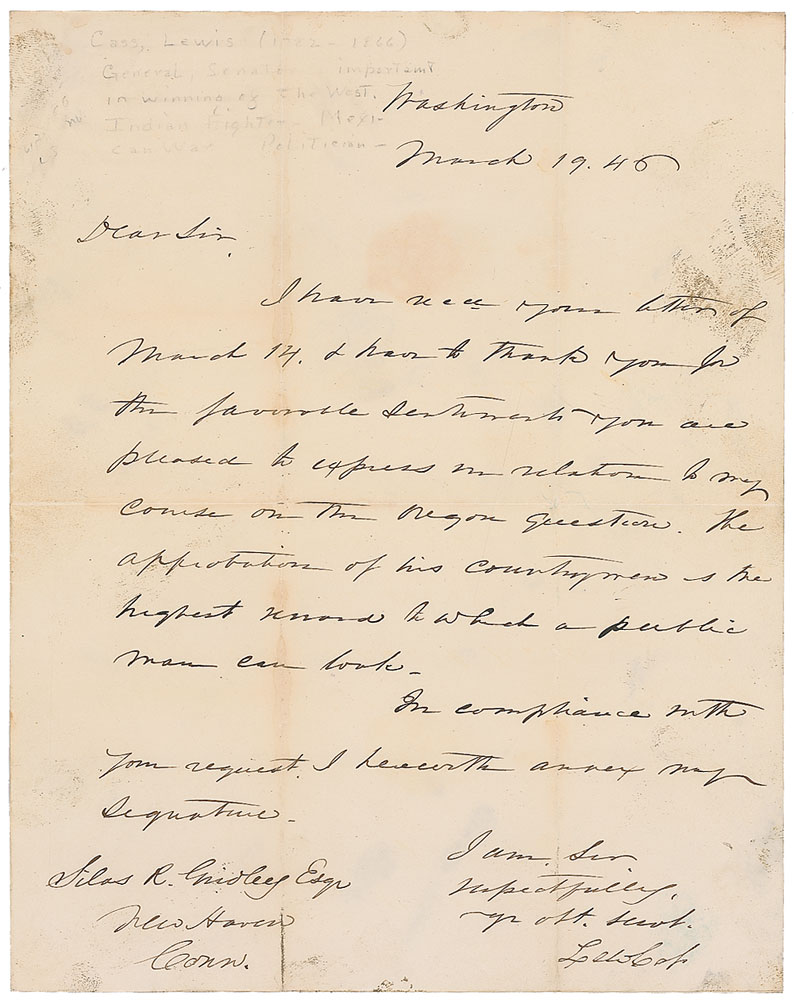 Cass, Lewis (1782-1866)
General, Senator important
in winning of the West.
Indian Fighter - Mexi-
can War Politician -
Washington
March 19. 46
Dear Sir,
I have recd your letter of
March 14, & have to thank you for
the favorable sentiments you are
pleased to express in relation to my
course on the Oregon question. The
approbation of his countrymen is the
highest reward to which a public
man can look.
In compliance with
your request, I herewith annex my
signature.
I am, Sir
respectfully,
yr obt. servt.
Lew Cass
Silas R. Gridley Esqr
New Haven
Conn.